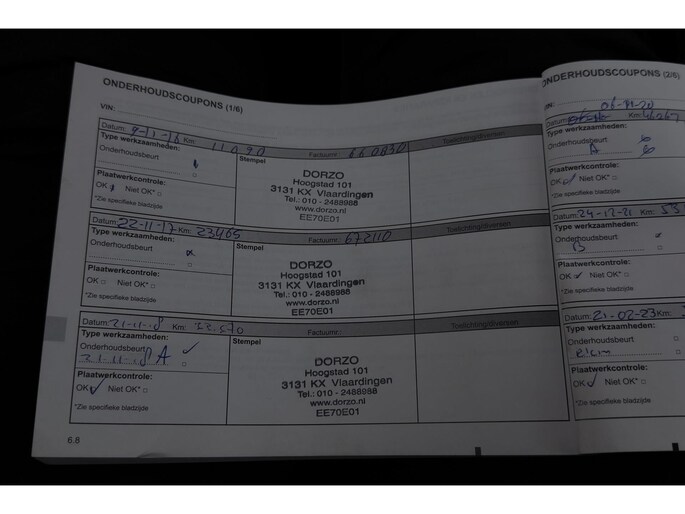 ONDERHOUDSCOUPONS (1/6)
VIN:
Datum: 9-11-16 Km: 11090 Factuurnr.: 660830 Toelichting/diversen:
Type werkzaamheden:
Onderhoudsbeurt
Stempel
Plaatwerkcontrole:
OK Niet OK*
*Zie specifieke bladzijde
DORZO
Hoogstad 101
3131 KX Vlaardingen
Tel.: 010 - 2488988
www.dorzo.nl
EE70E01
Datum: 22-11-17 Km: 23465 Factuurnr.: 672110 Toelichting/diversen:
Type werkzaamheden:
Onderhoudsbeurt
Stempel
Plaatwerkcontrole:
OK Niet OK*
*Zie specifieke bladzijde
DORZO
Hoogstad 101
3131 KX Vlaardingen
Tel.: 010 - 2488988
www.dorzo.nl
EE70E01
Datum: 21-11-18 Km: 33570 Factuurnr.: Toelichting/diversen:
Type werkzaamheden:
Onderhoudsbeurt
21-11-18 A
Stempel
Plaatwerkcontrole:
OK Niet OK*
*Zie specifieke bladzijde
DORZO
Hoogstad 101
3131 KX Vlaardingen
Tel.: 010 - 2488988
www.dorzo.nl
EE70E01
6.8
ONDERHOUDSCOUPONS (2/6)
VIN:
Datum: Km:
Type werkzaamheden:
Onderhoudsbeurt
A
Plaatwerkcontrole:
OK Niet OK*
*Zie specifieke bladzijde
Datum: 24-12-21
Type werkzaamheden:
Onderhoudsbeurt
B
Plaatwerkcontrole:
OK Niet OK*
*Zie specifieke bladzijde
Datum: 21-02-23 Km:
Type werkzaamheden:
Onderhoudsbeurt
Plaatwerkcontrole:
OK Niet OK*
*Zie specifieke bladzijde